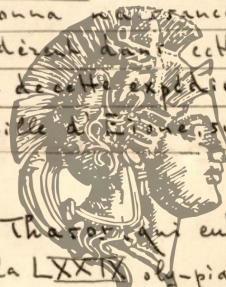 onna
dèrent dans cett
de cette expédi
ille d'Eione, s
Thasos, qui eu
la LXXIX olympia